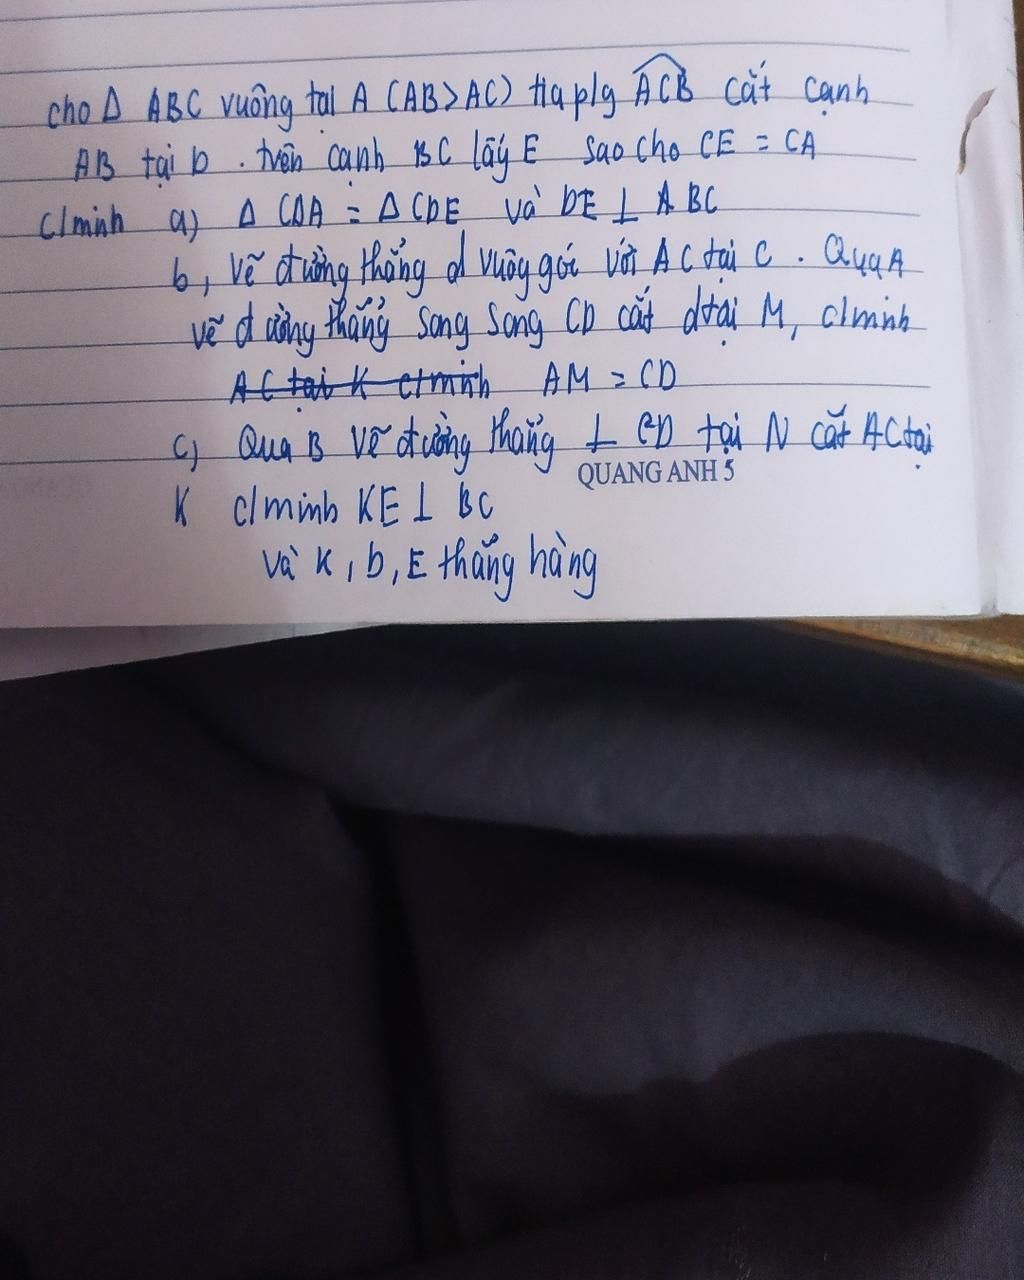 cho Δ ABC vuông tại A (AB > AC) tia p/g ACB cắt cạnh
AB tại D . trên cạnh BC lấy E sao cho CE = CA
C/minh a) Δ CDA = Δ CDE và DE ⊥ ABC
b, Vẽ đường thẳng d vuông góc với AC tại C . Qua A
vẽ đường thẳng song song CD cắt d tại M, c/minh
AC tại K c/minh AM = CD
c) Qua B Vẽ đường thẳng ⊥ CD tại N cắt AC tại
QUANG ANH 5
K c/minh KE ⊥ BC
và K, D, E thẳng hàng